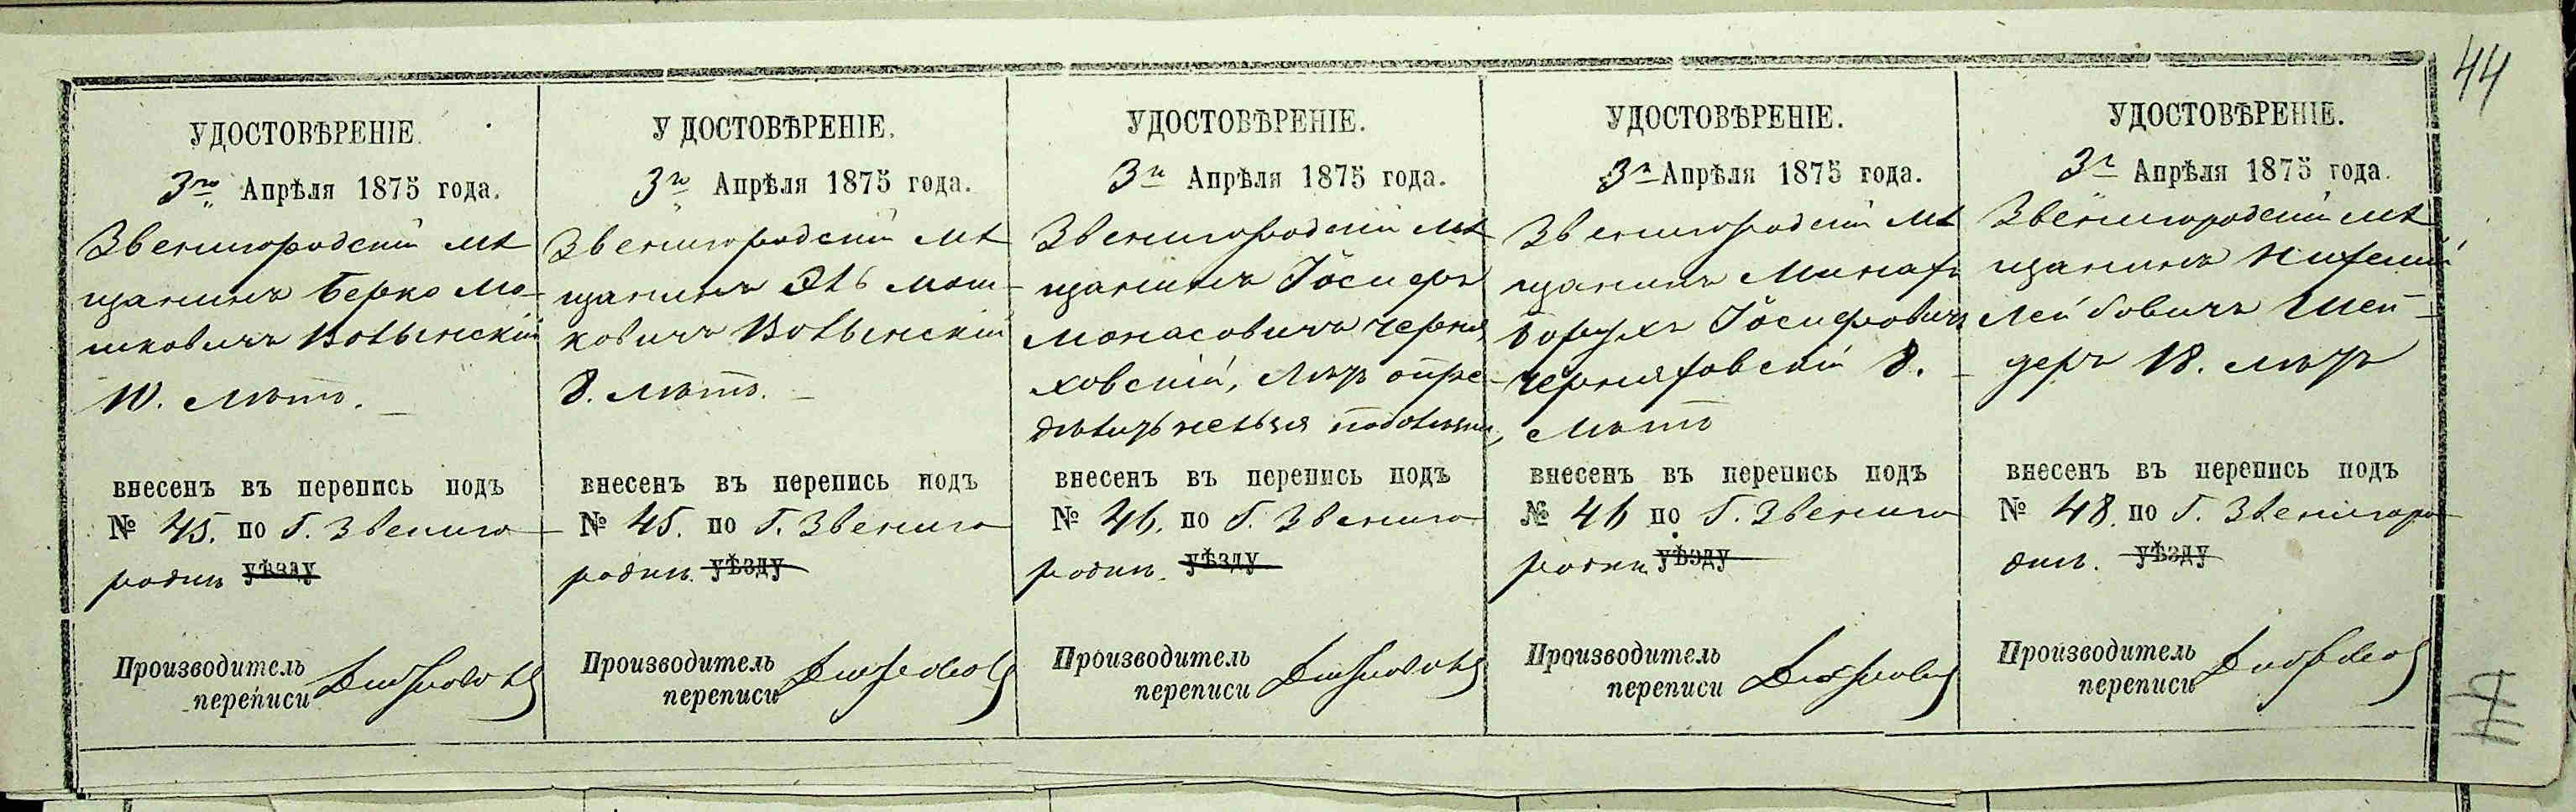 44
УДОСТОВѢРЕНІЕ.
3го Апрѣля 1875 года.
Звенигородскій мѣ
щанинъ Берко Мо-
шковичъ Волынскій
10. лѣтъ.
внесенъ въ перепись подъ
№ 45. по г. Звениго
родкѣ уѣзду
Производитель
переписи
УДОСТОВѢРЕНІЕ.
3го Апрѣля 1875 года.
Звенигородскій мѣ
щанинъ Эль Мош-
ковичъ Волынскій
8. лѣтъ.
внесенъ въ перепись подъ
№ 45. по г. Звениго
родкѣ. уѣзду
Производитель
переписи
УДОСТОВѢРЕНІЕ.
3го Апрѣля 1875 года.
Звенигородскій мѣ
щанинъ Іосифъ
Монасовичъ Черня
ховскій, лѣтъ опре-
дѣлить нельзя
внесенъ въ перепись подъ
№ 46. по г. Звениго
родкѣ. уѣзду
Производитель
переписи
УДОСТОВѢРЕНІЕ.
3го Апрѣля 1875 года.
Звенигородскій мѣ
щанинъ
Борухъ Іосифовичъ
Черняховскій 8.
лѣтъ
внесенъ въ перепись подъ
№ 46 по г. Звениго
родкѣ уѣзду
Производитель
переписи
УДОСТОВѢРЕНІЕ.
3го Апрѣля 1875 года.
Звенигородскій мѣ
щанинъ
Лейбовичъ Шей-
деръ 18. лѣтъ
внесенъ въ перепись подъ
№ 48. по г. Звенигоро
дкѣ. уѣзду
Производитель
переписи